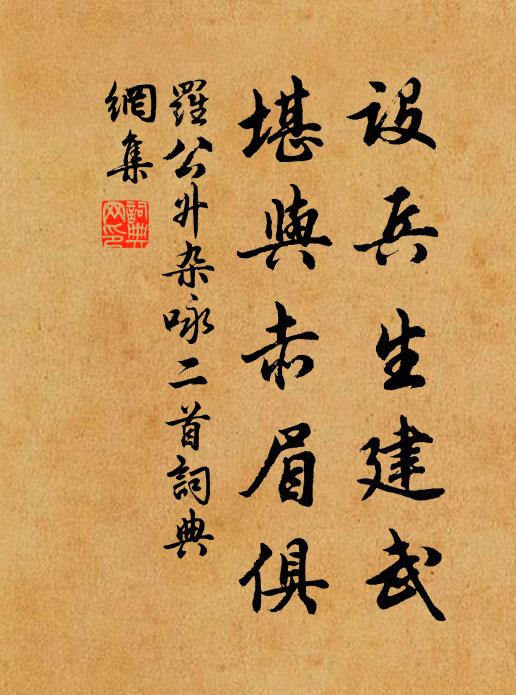 設兵生建武
堪與赤眉俱
羅公升杂咏二首詞典
網集
詞典網印